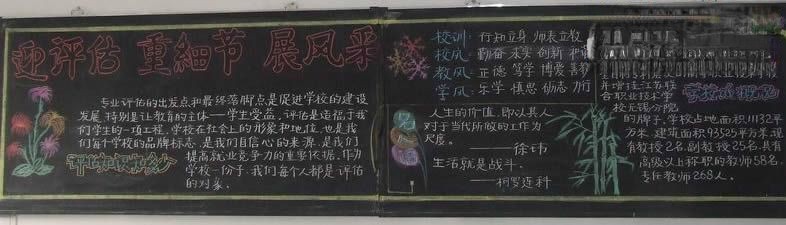 迎评估 重细节 展风采
专业评估的出发点和最终落脚点是促进学校的建设
发展,特别是让教育的主体——学生受益,评估是造福于我
们学生的一项工程,学校在社会上的形象和地位,也是我
们每个学校的品牌标志,是我们自信心的来源,是我们
提高就业竞争力的重要依据,作为
学校一份子,我们每个人都是评估
的对象.
校训: 行知立身 师表立教
校风: 勤奋 求实 创新 和谐
教风: 正德 笃学 博爱 善教
学风: 乐学 慎思 励志 力行
人生的价值,即以其人
对于当代所做的工作为
尺度。
——徐玮
生活就是战斗.
——柯罗连科
并增挂江苏联
合职业技术学
院无锡分院
的牌子,学校占地面积11132平
方米,建筑面积93525平方米,现
有教授2名,副教授25名,具有
高级以上称职的教师58名,
专任教师268人.